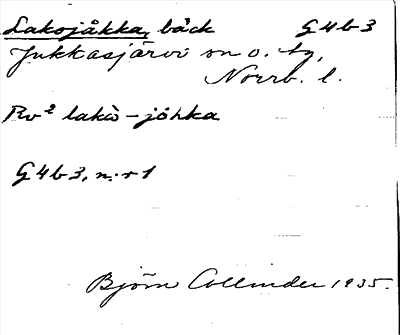 Lakojåkka, bäck G4b3
Jukkasjärvi sn o. tg,
Norrb. l.
Rv² lakò-jòhka
G4b3, n.r 1
Björn Collinder 1935.